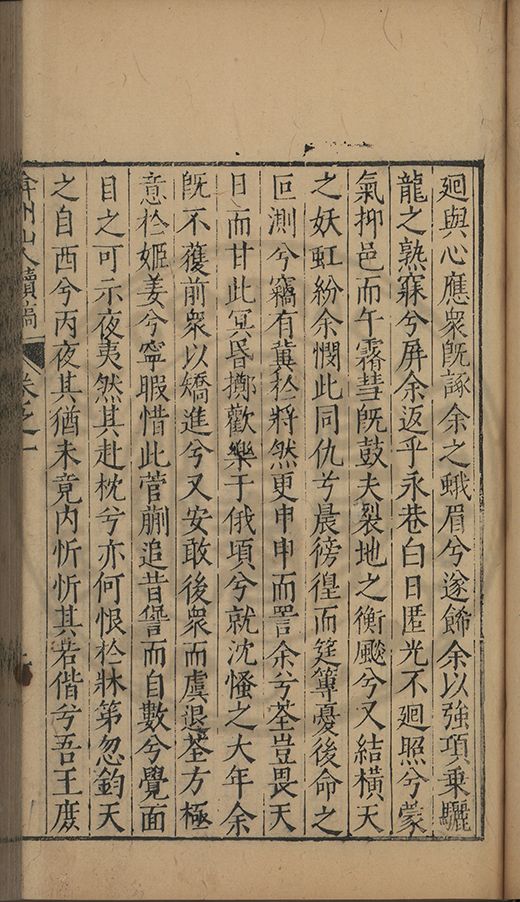 廻與心應衆旣諑余之蛾眉兮遂餙余以強項乗驪
龍之熟寐兮屏余返乎永巷白日匿光不廻照兮蒙
氣抑邑而午霧彗旣鼓夫裂地之衡飈兮又結橫天
之妖虹紛余憫此同仇兮晨徬徨而筳篿憂後命之
叵測兮竊有冀於將然更申申而詈余兮荃豈畏天
日而甘此冥昏擲歡樂于俄頃兮就沈慅之大年余
旣不獲前衆以矯進兮又安敢後衆而虞退荃方極
意於姬姜兮寧暇惜此菅蒯追昔諐而自數兮覺面
目之可示夜夷然其赴枕兮亦何恨於牀第忽鈞天
之自西兮丙夜其猶未竟内忻忻其若偕兮吾王庶
弇州山人續稿
卷之一